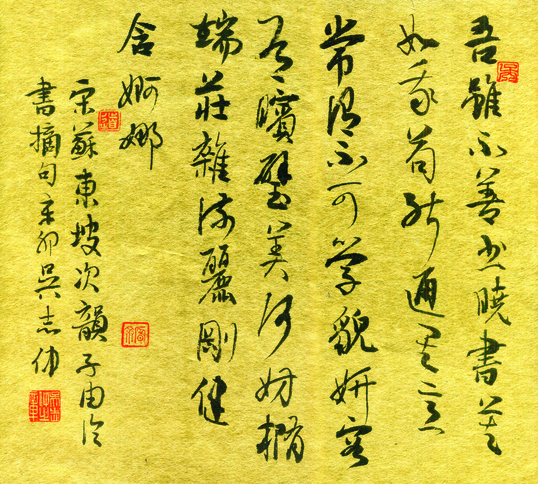 吾雖不善書曉書莫
如我苟能通其意
常謂不可學貌妍容
有矉璧美何妨橢
端莊雜流麗剛健
含婀娜
宋蘇東坡次韻子由論
書摘句辛卯吳志